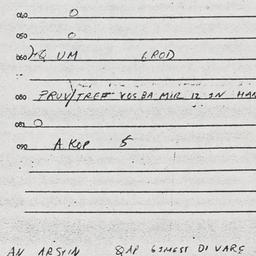 040 O
050 O
060 Q UM GROD
080 PRUV/TREF VOSBA MIR 12 IN HAN
081 O
090 A.KOP 5
AN ARSYIN QAP GIMEST DI VARE